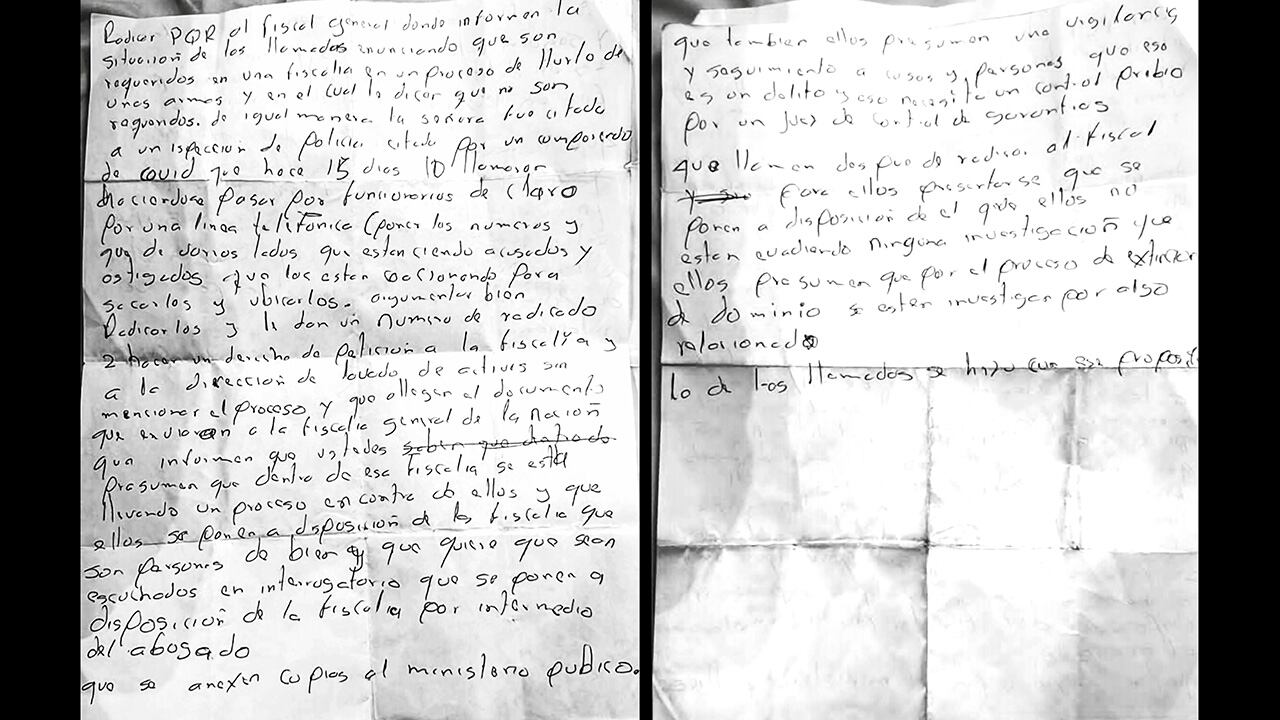 Radicar PQR al fiscal general donde informen la
situación de las llamadas enunciando que son
requeridos en una fiscalia en un proceso de Hurto de
unas armas y en el cual le dicen que no son
requeridos. de igual manera la señora fue citada
a un ispección de Policia citado por un comparendo
de covid que hace 15 dias 10 llamaron
Haciendose pasar por funcionarios de claro
por una linea telefónica (poner los numeros y
que de donios lados que estan ciendo acusados y
ostigados que los estan coacionando para
sacarlos y ubicarlos. argumentar bien
Radicarlos y le dan un numero de radicado
2 Hacer un derecho de petición a la fiscalía y
a la dirección de lavado de activos sin
mencionar el proceso y que allegan el documento
que enviaron a la fiscalia general de la Nación
que informen que ustedes saben que dentro de
presumen que dentro de esa fiscalia se está
llevando un proceso en contra de ellos y que
ellos se ponen a disposición de la fiscalia que
son personas de bien y que quiere que sean
escuchados en interrogatorio que se ponen a
disposición de la fiscalia por intermedio
del abogado
que se anexen copias al ministerio publico.
que tambien ellos presumen una vigilancia
y seguimiento a casas y personas que eso
es un delito y eso necesita un control prebio
por un juez de control de garantias
que llamen despues de radicar al fiscal
para ellos presentarse que se
ponen a disposición de el que ellos no
estan evadiendo ninguna investigación y que
ellos presumen que por el proceso de extincion
de dominio se esten investigan por algo
relacionado
lo de las llamadas se hizo con ese proposit